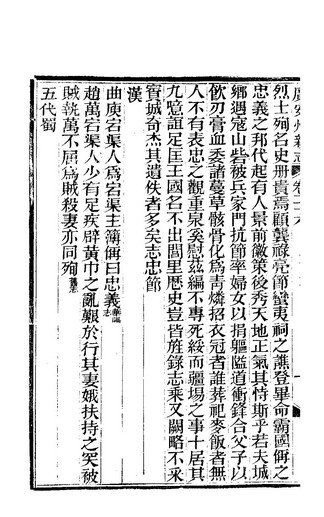 廣安州新志 卷二十六
烈士殉名史册貴焉顧龔祿亮節蠻夷祠之譙登畢命霸國偁之
忠義之邦代起有人景前徽策後秀天地正氣其恃斯乎若夫城
鄉遇寇山砦被兵家門抗節率婦女以捐軀隘道衝鋒合父子以
飲刃膏血委諸蔓草骸骨化爲青燐招衣冠者誰葬祀麥飯者無
人不有表忠之觀重泉奚慰茲編不專死綏而疆場之事十居其
九覽誼足匡王國名不出閭里歷史豈皆旌錄志乘又闕略不釆
賨城奇杰其遺佚者多矣志忠節
漢
曲庾宕渠人爲宕渠主簿偁曰忠義華陽志
趙萬宕渠人少有足疾辟黃巾之亂艱於行其妻娥扶持之突被
賊執萬不屈爲賊殺妻亦同殉舊志
五代蜀